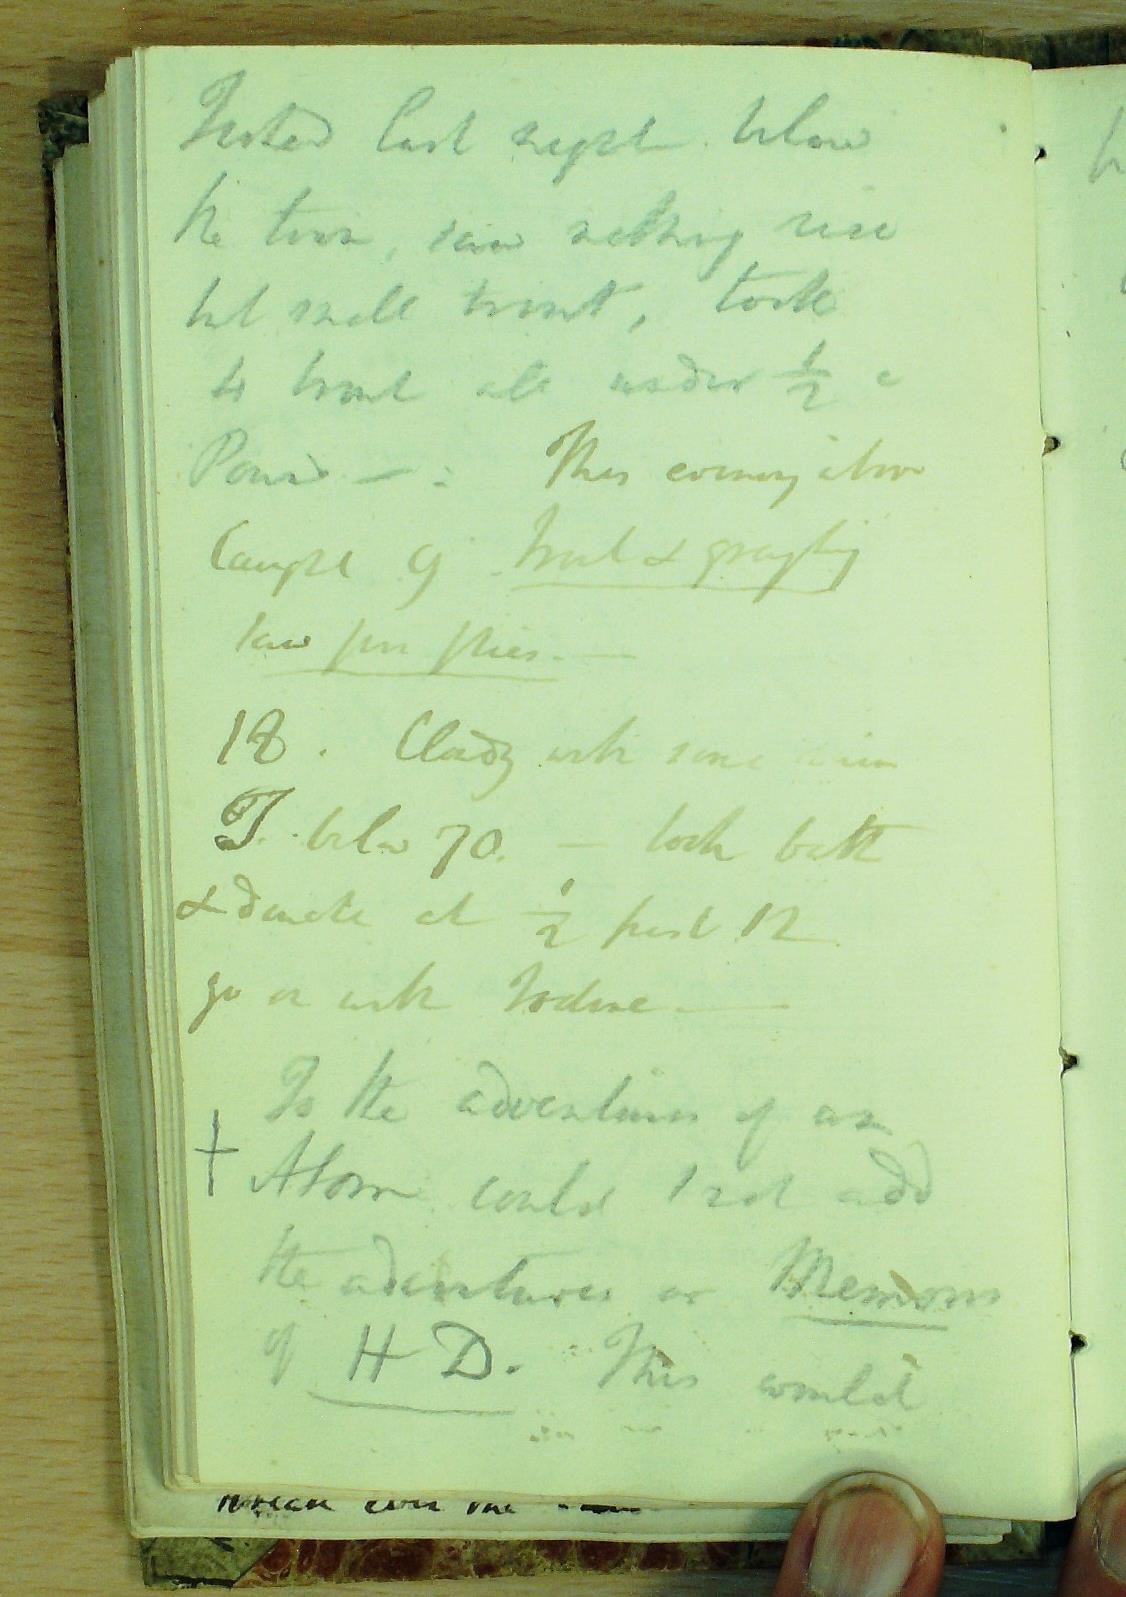 Fished last night below
the town, saw nothing rise
but small trout, took
4 trout all under ½ a
Pound — : This evening above
Caught 9 trout & grayling
saw few flies. —
18. Cloudy with some
T. below 70. — took bath
& douche at ½ past 12
go on with Iodine —
To the adventures of an
+ Atom could I not add
the adventures or Memoirs
of H D. This would